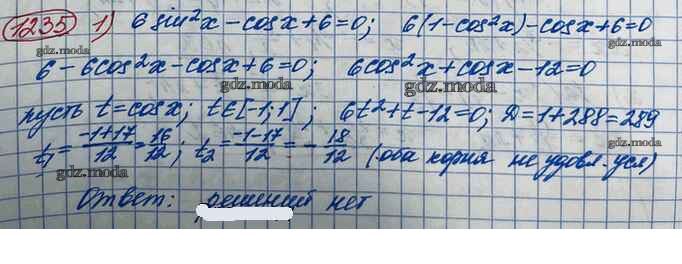 1235 1) 6 sin²x - cosx + 6 = 0; 6(1 - cos²x) - cosx + 6 = 0
gdz.moda gdz.moda
6 - 6cos²x - cosx + 6 = 0; 6cos²x + cosx - 12 = 0
gdz.moda gdz.moda
пусть t = cosx; t∈[-1;1]; 6t² + t - 12 = 0; D = 1 + 288 = 289
gdz.moda gdz.moda
t₁ = (-1+17)/12 = 16/12; t₂ = (-1-17)/12 = -18/12 (оба корня не удовл. усл)
gdz.moda gdz.moda
Ответ: решений нет